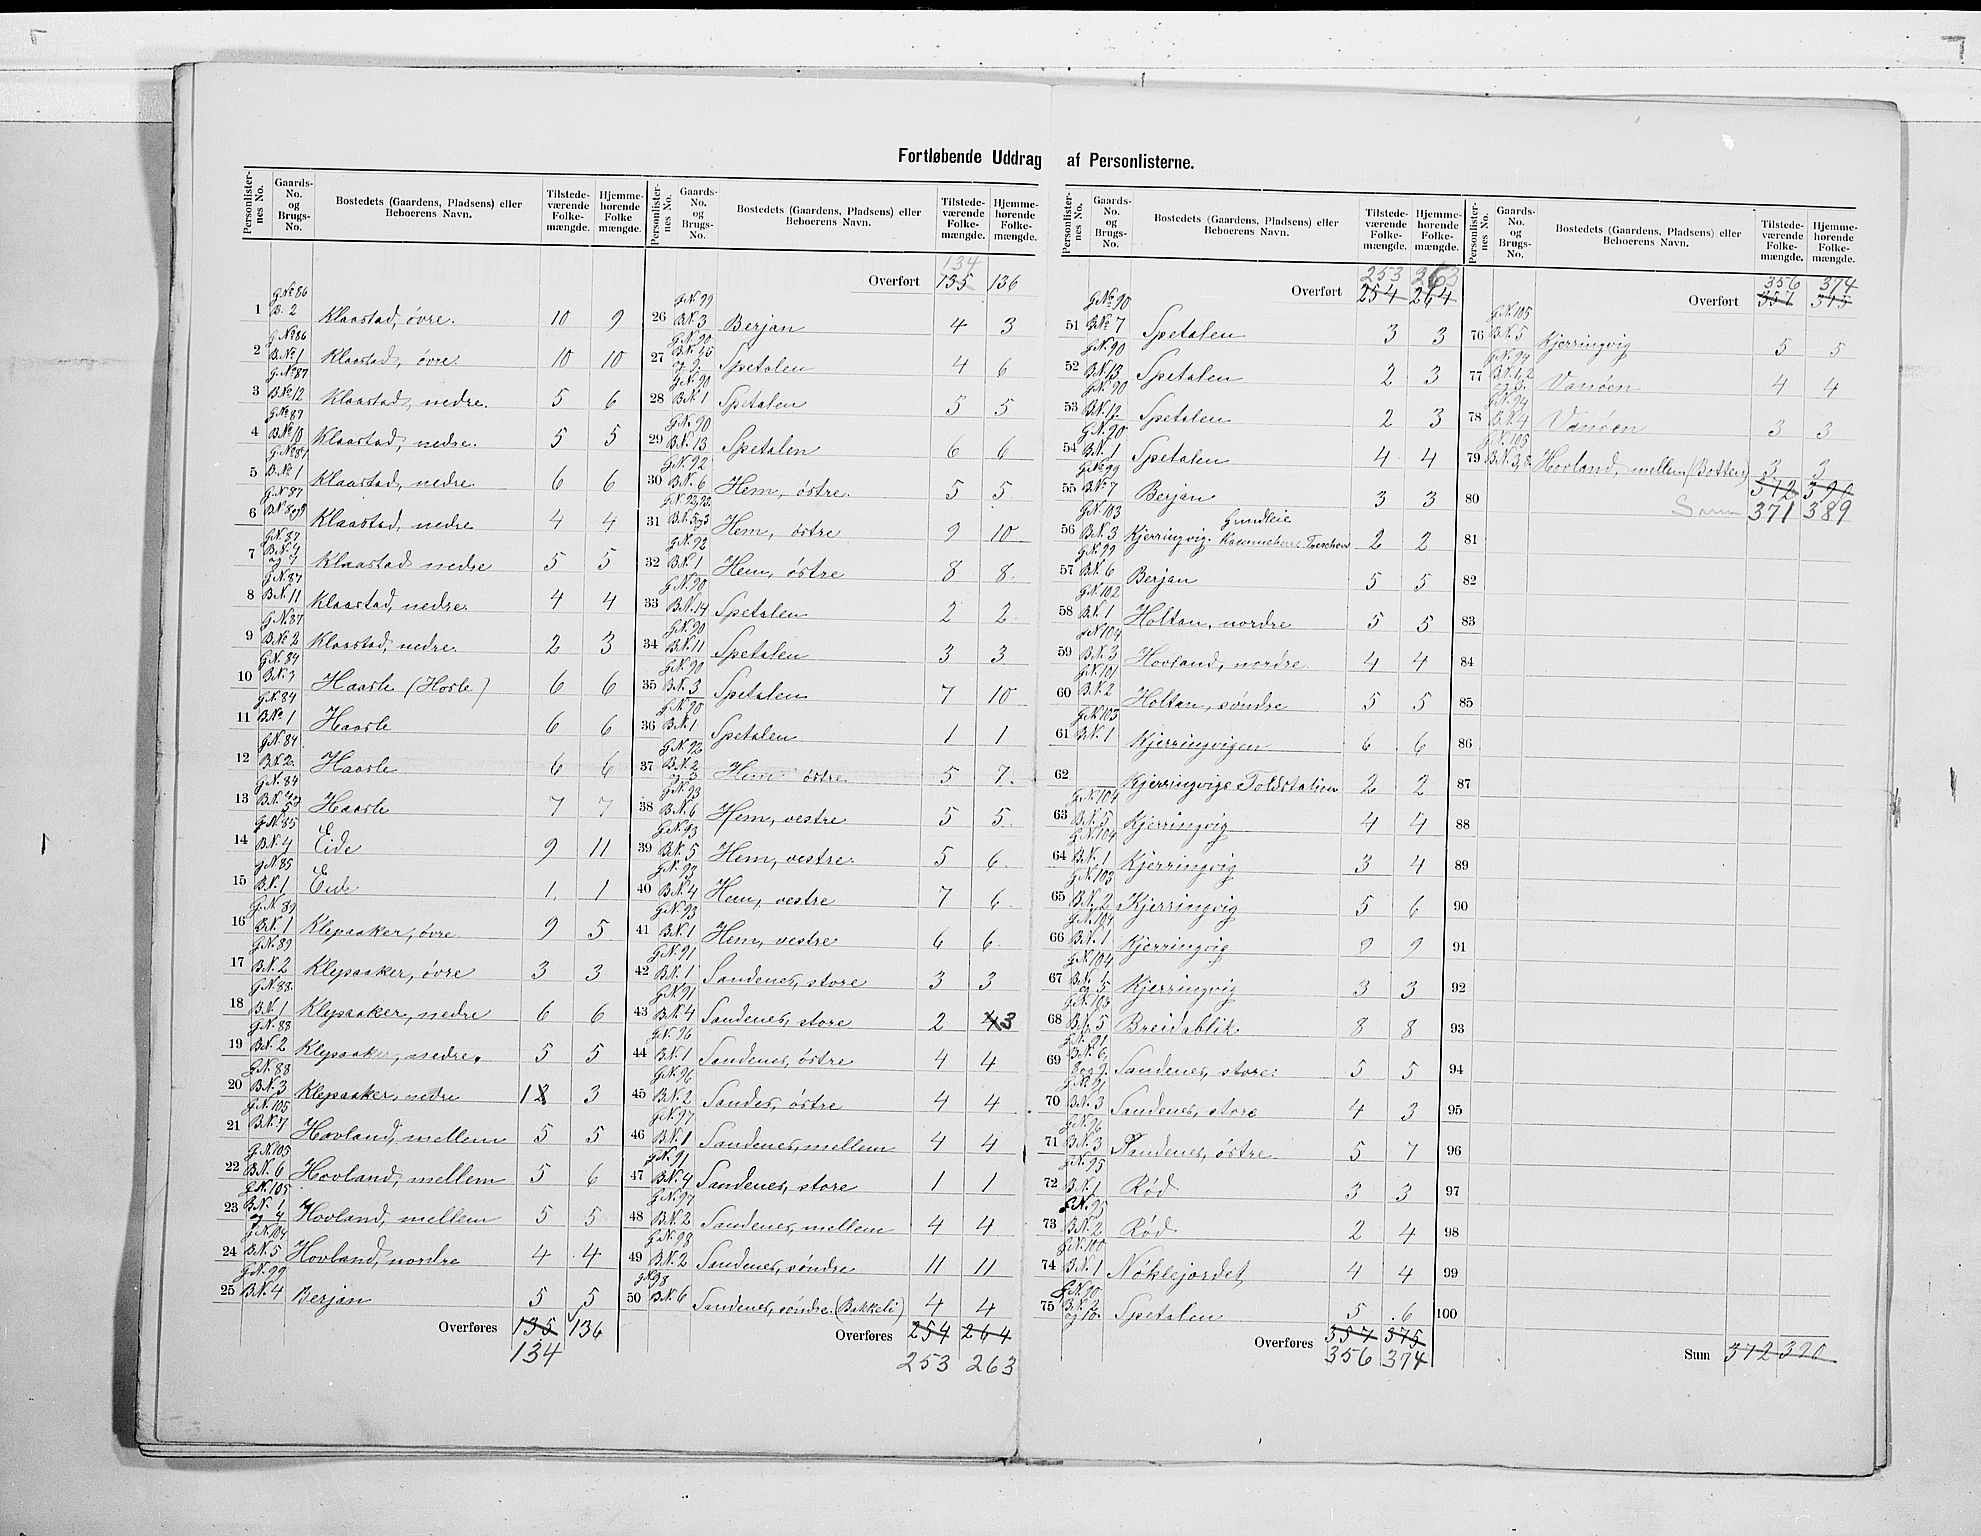 Fortløbende Uddrag af Personlisterne.
Personlisternes No. Gaards-No. og Brugs-No. Bostedets (Gaardens, Pladsens) eller Beboerens Navn. Tilstedeværende Folkemængde. Hjemmehørende Folkemængde.
1 G.No 86 B. 2 Klaastad, øvre. 10 9
2 G.No 86 B.No 1 Klaastad, øvre. 10 10
3 G.No 87 B.No 12 Klaastad, nedre. 5 6
4 G.No 87 B.No 10 Klaastad, nedre. 5 5
5 G.No 87 B.No 1 Klaastad, nedre. 6 6
6 G.N. 87 B.N. 8 og 9 Klaastad, nedre 4 4
7 G.N. 87 B.N. 4 og 7 Klaastad nedre 5 5
8 G.N. 87 B.N. 11 Klaastad, nedre. 4 4
9 G.N. 87 B.No 2 Klaastad, nedre. 2 3
10 G.N. 84 B.N. 3 Haasle (Hosle) 6 6
11 G.N. 84 B.No 1 Haasle 6 6
12 G.N. 84. B.N. 2. Haasle 6 6
13 G.N. 84 B.N. 4 og 5 Haasle 7 7
14 G.N. 85 B.N. 4 Eide 9 11
15 G.N. 85 B.N. 1 Eide 1. 1
16 G.N. 89 B.N. 1 Klepaaker, øvre. 9 5
17 G.N. 89 B.N. 2 Klepaaker, øvre 3 3
18 G.N. 88. B.N. 1 Klepaaker, nedre 6 6
19 G.N. 88 B.N. 2 Klepaaker, nedre. 5 5
20 G.N. 88 B.N. 3 Klepaaker, nedre 1 3
21 G.N. 105 B.N. 7 Hovland, mellem 5 5
22 G.N. 105 B.N. 6 Hovland, mellem 5 6
23 G.N. 105 B.N. 1 og 4 Hovland, mellem 5 5
24 G.N. 104 B.N. 5 Hovland, nordre 4 4
25 G.N. 99 B.N. 4 Berjan 5 5
Overføres 135 136
134
134
Overført 135 136
26 G.N. 99 B.N. 3 Berjan 4 3
27 G.N. 90 Spetalen 4 6
28 G.N. 90 B.N. 1 Spetalen 5 5
29 G.N. 90 B.N. 13 Spetalen 6 6
30 G.N. 92 B.N. 6 Hem, østre. 5 5
31 B.N. 5 og 3 Hem, østre 9 10
32 G.N. 92 B.N. 1 Hem, østre 8 8.
33 G.N. 90 B.N. 14 Spetalen 2 2
34 G.N. 90 B.N. 11 Spetalen 3 3
35 G.N. 90 B.N. 3 Spetalen 7 10
36 G.N. 90 B.N. 1 Spetalen 1 1
37 G.N. 92 B.N. 2 og 3 Hem østre 5 7.
38 G.N. 93 B.N. 6 Hem, vestre 5 5.
39 G.N. 93 B.N. 5 Hem, vestre. 5 6
40 G.N. 93 B.N. 4 Hem, vestre 7 6
41 G.N. 93 B.N. 1 Hem, vestre 6 6.
42 G.N. 91 B.N. 1 Sandenes, store 3 3
43 G.N. 91 B.N. 4 Sandenes, store 2 4 3
44 G.N. 96 B.N. 1 Sandenes, østre 4 4
45 G.N. 96 B.N. 2 Sandes, østre 4 4
46 G.N. 97 B.N. 1 Sandenes, mellem 4 4
47 G.N. 91 B.N. 4 Sandenes, store 1 1
48 G.N. 97 B.N. 2 Sandenes, mellem 4 4
49 G.N. 98 B.N. 2 Sandenes, søndre 11 11
50 G.N. 98 B.N. 6 Sandenes, søndre. (Bakkeli) 4 4
Overføres 254 264
253 263
253 263
Overført 254 264
51 G.No 90 B.No 7 Spetalen 3 3
52 G.N. 90 B.N. 13 Spetalen 2 3
53 G.N. 90 B.N. 12. Spetalen 2 3
54 G.N. 90 B.N. 1 Spetalen 4 4
55 G.No 99 B.No 7 Berjan 3 3
56 G.N. 103 B.N. 3 Kjerringvig. Treschow 2 2
57 G.N. 99 B.N. 6 Berjan 5 5
58 G.N. 102 B.N. 1 Holtan, nordre 5 5
59 G.N. 104 B.N. 3 Hovland, nordre. 4 4
60 G.N. 101 B.N. 2 Holtan, søndre 5 5
61 G.N. 103 B.N. 1 Kjerringvigen 6 6
62 Kjerringvigs Toldstation 2 2
63 G.N. 104 B.N. 5 Kjerringvig 4 4
64 G.N. 104 B.N. 1 Kjerringvig 3 4
65 G.N. 103 B.N. 2 Kjerringvig 5 6
66 G.N. 104 B.N. 1 Kjerringvig 9 9
67 G.N. 104 og 5 Kjerringvig 3 3
68 G.N. 103 B.N. 5 Breidablik. 8 8
69 G.N. 91 B.N. 6, 8 og 9. Sandenes, store. 5 5
70 G.No 91 B.N. 3 Sandenes, store 4 3
71 G.N. 96 B.N. 3 Sandenes, østre 5 7
72 G.N. 95 B.N. 1 Rød 3 3
73 G.N. 95 B.N. 2 Rød 2 4
74 G.N. 100 B.N. 1 Nøklejordet 4 4
75 G.N. 90 B.N. 2 og 10. Spetalen 5 6
Overføres 357 375
356 374
356 374
Overført 357 375
76 G.N. 105 B.N. 5 Kjerringvig 5 5
77 G.N. 94 B.N. 1, 2 og 3. Vanøen 4 4
78 G.N. 94 B.N. 4 Vanøen 3 3
79 G.N. 105 Hovland, mellem (Botten) 3 3
372 390
80 Sum 371 389
81
82
83
84
85
86
87
88
89
90
91
92
93
94
95
96
97
98
99
100
Sum 372 390